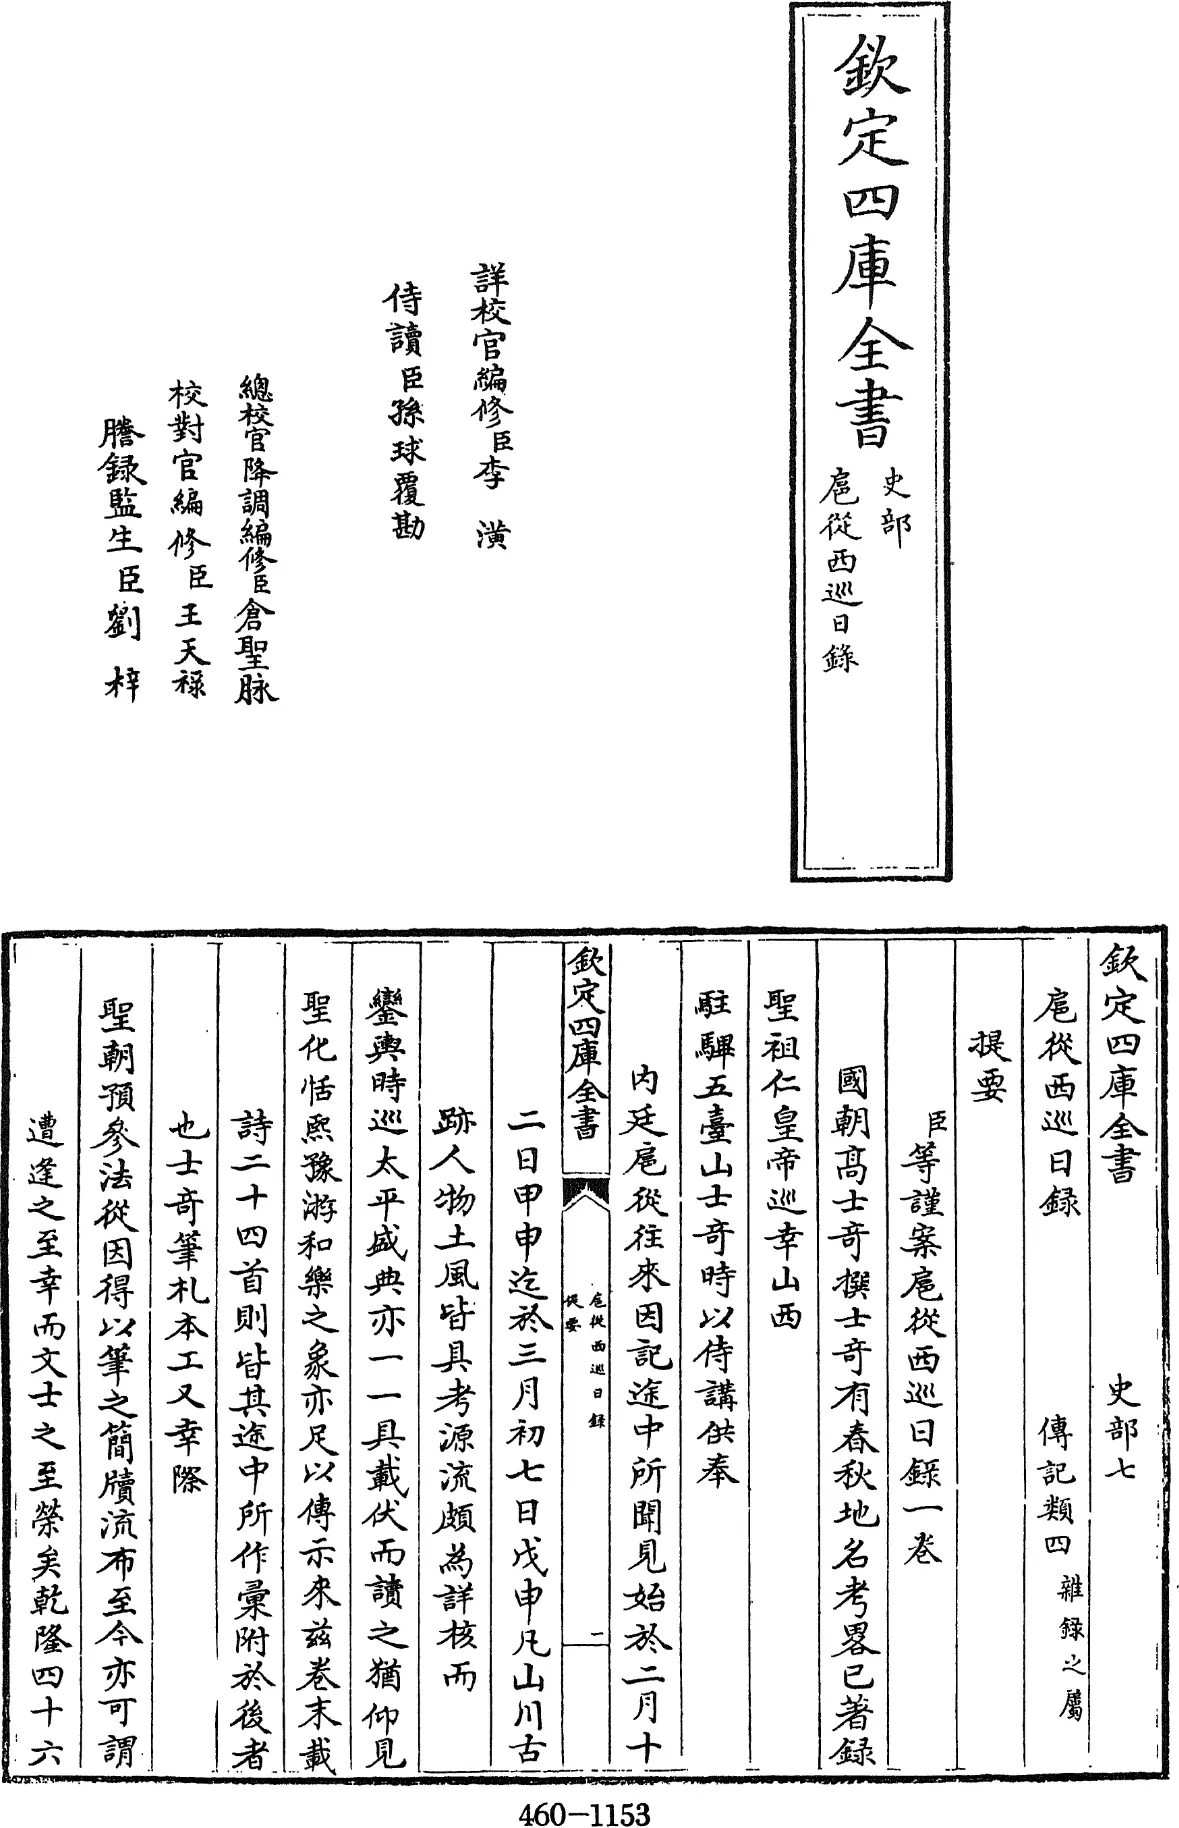 欽定四庫全書
史部
扈從西巡日錄
詳校官編修臣李潢
侍讀臣孫球覆勘
總校官降調編修臣倉聖脉
校對官編修臣王天祿
謄錄監生臣劉梓
欽定四庫全書 史部七
扈從西巡日録 傳記類四 雜録之屬
提要
臣等謹案扈從西巡日録一卷
國朝髙士竒撰士竒有春秋地名考畧已著録
聖祖仁皇帝巡幸山西
駐驆五臺山士竒時以侍講供奉
内廷扈從往來因記途中所聞見始於二月十
欽定四庫全書
扈從西巡日録
提要
一
二日甲申迄於三月初七日戊申凡山川古
跡人物土風皆具考源流頗為詳核而
鑾輿時巡太平盛典亦一一具載伏而讀之猶仰見
聖化恬熙豫游和樂之象亦足以傳示來兹卷末載
詩二十四首則皆其途中所作彙附於後者
也士竒筆札本工又幸際
聖朝預參法從因得以筆之簡牘流布至今亦可謂
遭逢之至幸而文士之至榮矣乾隆四十六
460-1153